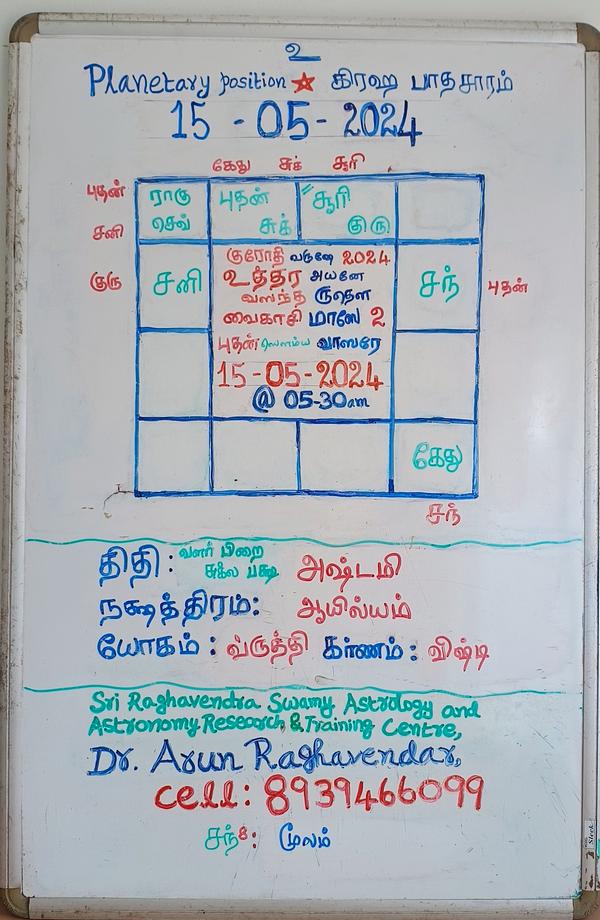 உ
Planetary position கிரஹ பாதசாரம்
15 - 05 - 2024
கேது சுக் சூரி
புதன் ராகு புதன் சூரி
சனி செவ் சுக் குரு
குரு சனி சந் புதன்
குரோதி வருஷே 2024
உத்தர அயனே
வஸந்த ருதௌ
வைகாசி மாஸே 2
புதன் ஸௌம்ய வாஸரே
15-05-2024
@ 05-30am
கேது
சந்
திதி: வளர் பிறை அஷ்டமி
சுக்ல பக்ஷ
நக்ஷத்திரம்: ஆயில்யம்
யோகம்: வ்ருத்தி கர்ணம்: விஷ்டி
Sri Raghavendra Swamy Astrology and
Astronomy Research & Training Centre,
Dr. Arun Raghavendar,
cell: 8939466099
சந் 8: மூலம்